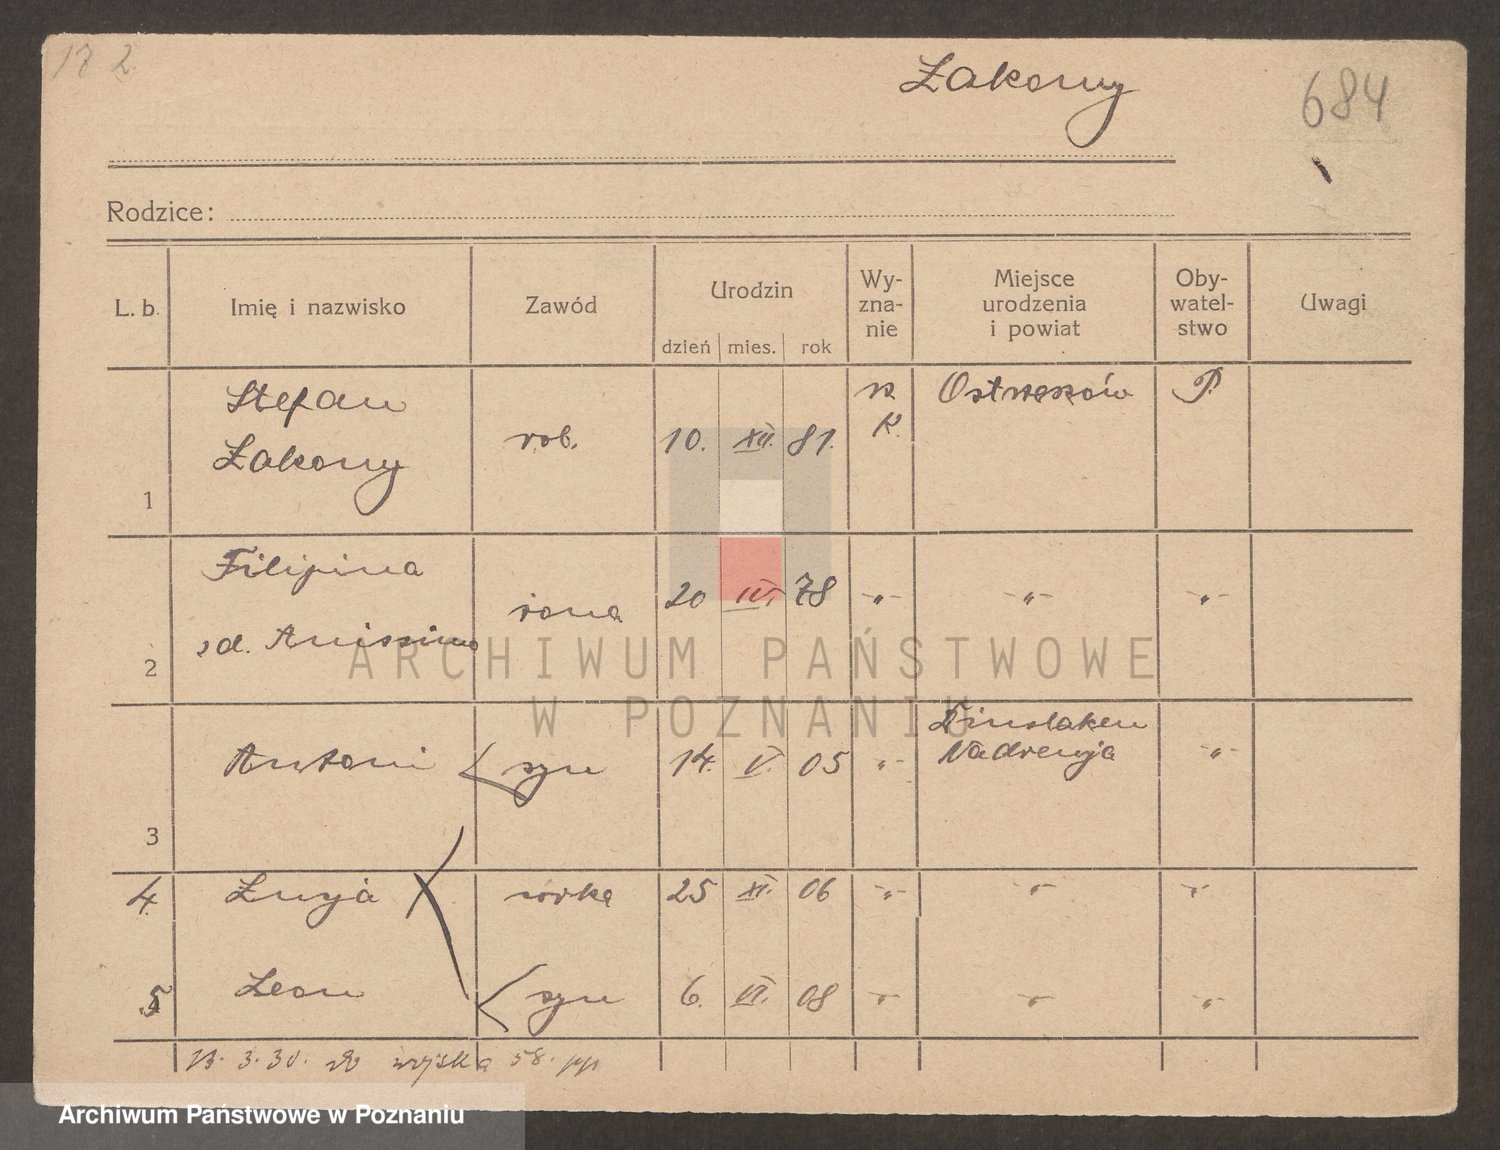 17 2
Żakowy
684
Rodzice:
L. b. Imię i nazwisko Zawód Urodzin Wy- Miejsce Oby- Uwagi
zna- urodzenia watel-
nie i powiat stwo
dzień mies. rok
1 Stefan Żakowy rob. 10. XII. 81. R K. P.
2 Filipina żona 20 78 -„- -„- -„-
3 Antoni syn 14. V. 05 -„- Dinslaken Nadrenja -„-
4. córka 25 XI. 06 -„- -„- -„-
5 Leon syn 6. VI. 08 -„- -„- -„-
13. 3. 30. do wojska 58. pp
ARCHIWUM PAŃSTWOWE
W POZNANIU
Archiwum Państwowe w Poznaniu